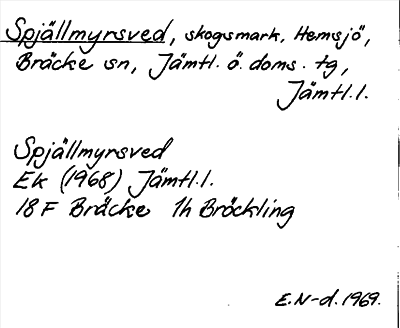 Spjällmyrsved, skogsmark, Hemsjö,
Bräcke sn, Jämtl. ö. doms. tg,
Jämtl.l.
Spjällmyrsved
Ek (1968) Jämtl.l.
18 F Bräcke 1h Bröckling
E.N-d. 1969.